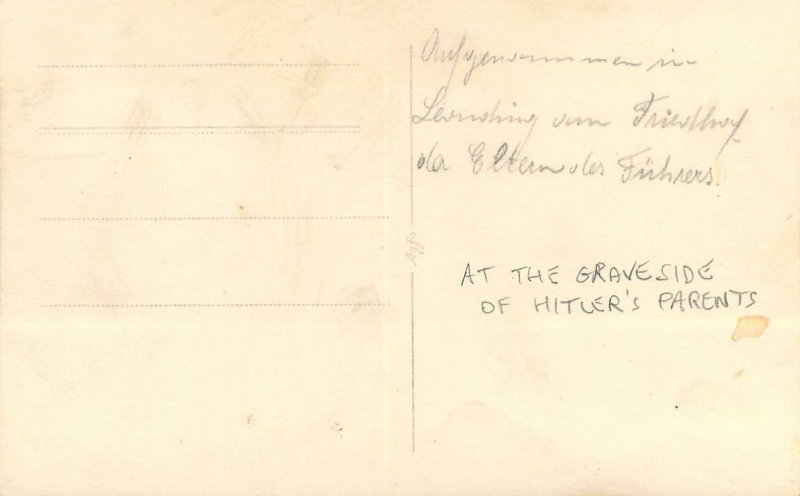 Aufgenommen in
Leonding am Friedhof
der Eltern des Führers.
Agfa
AT THE GRAVESIDE
OF HITLER'S PARENTS